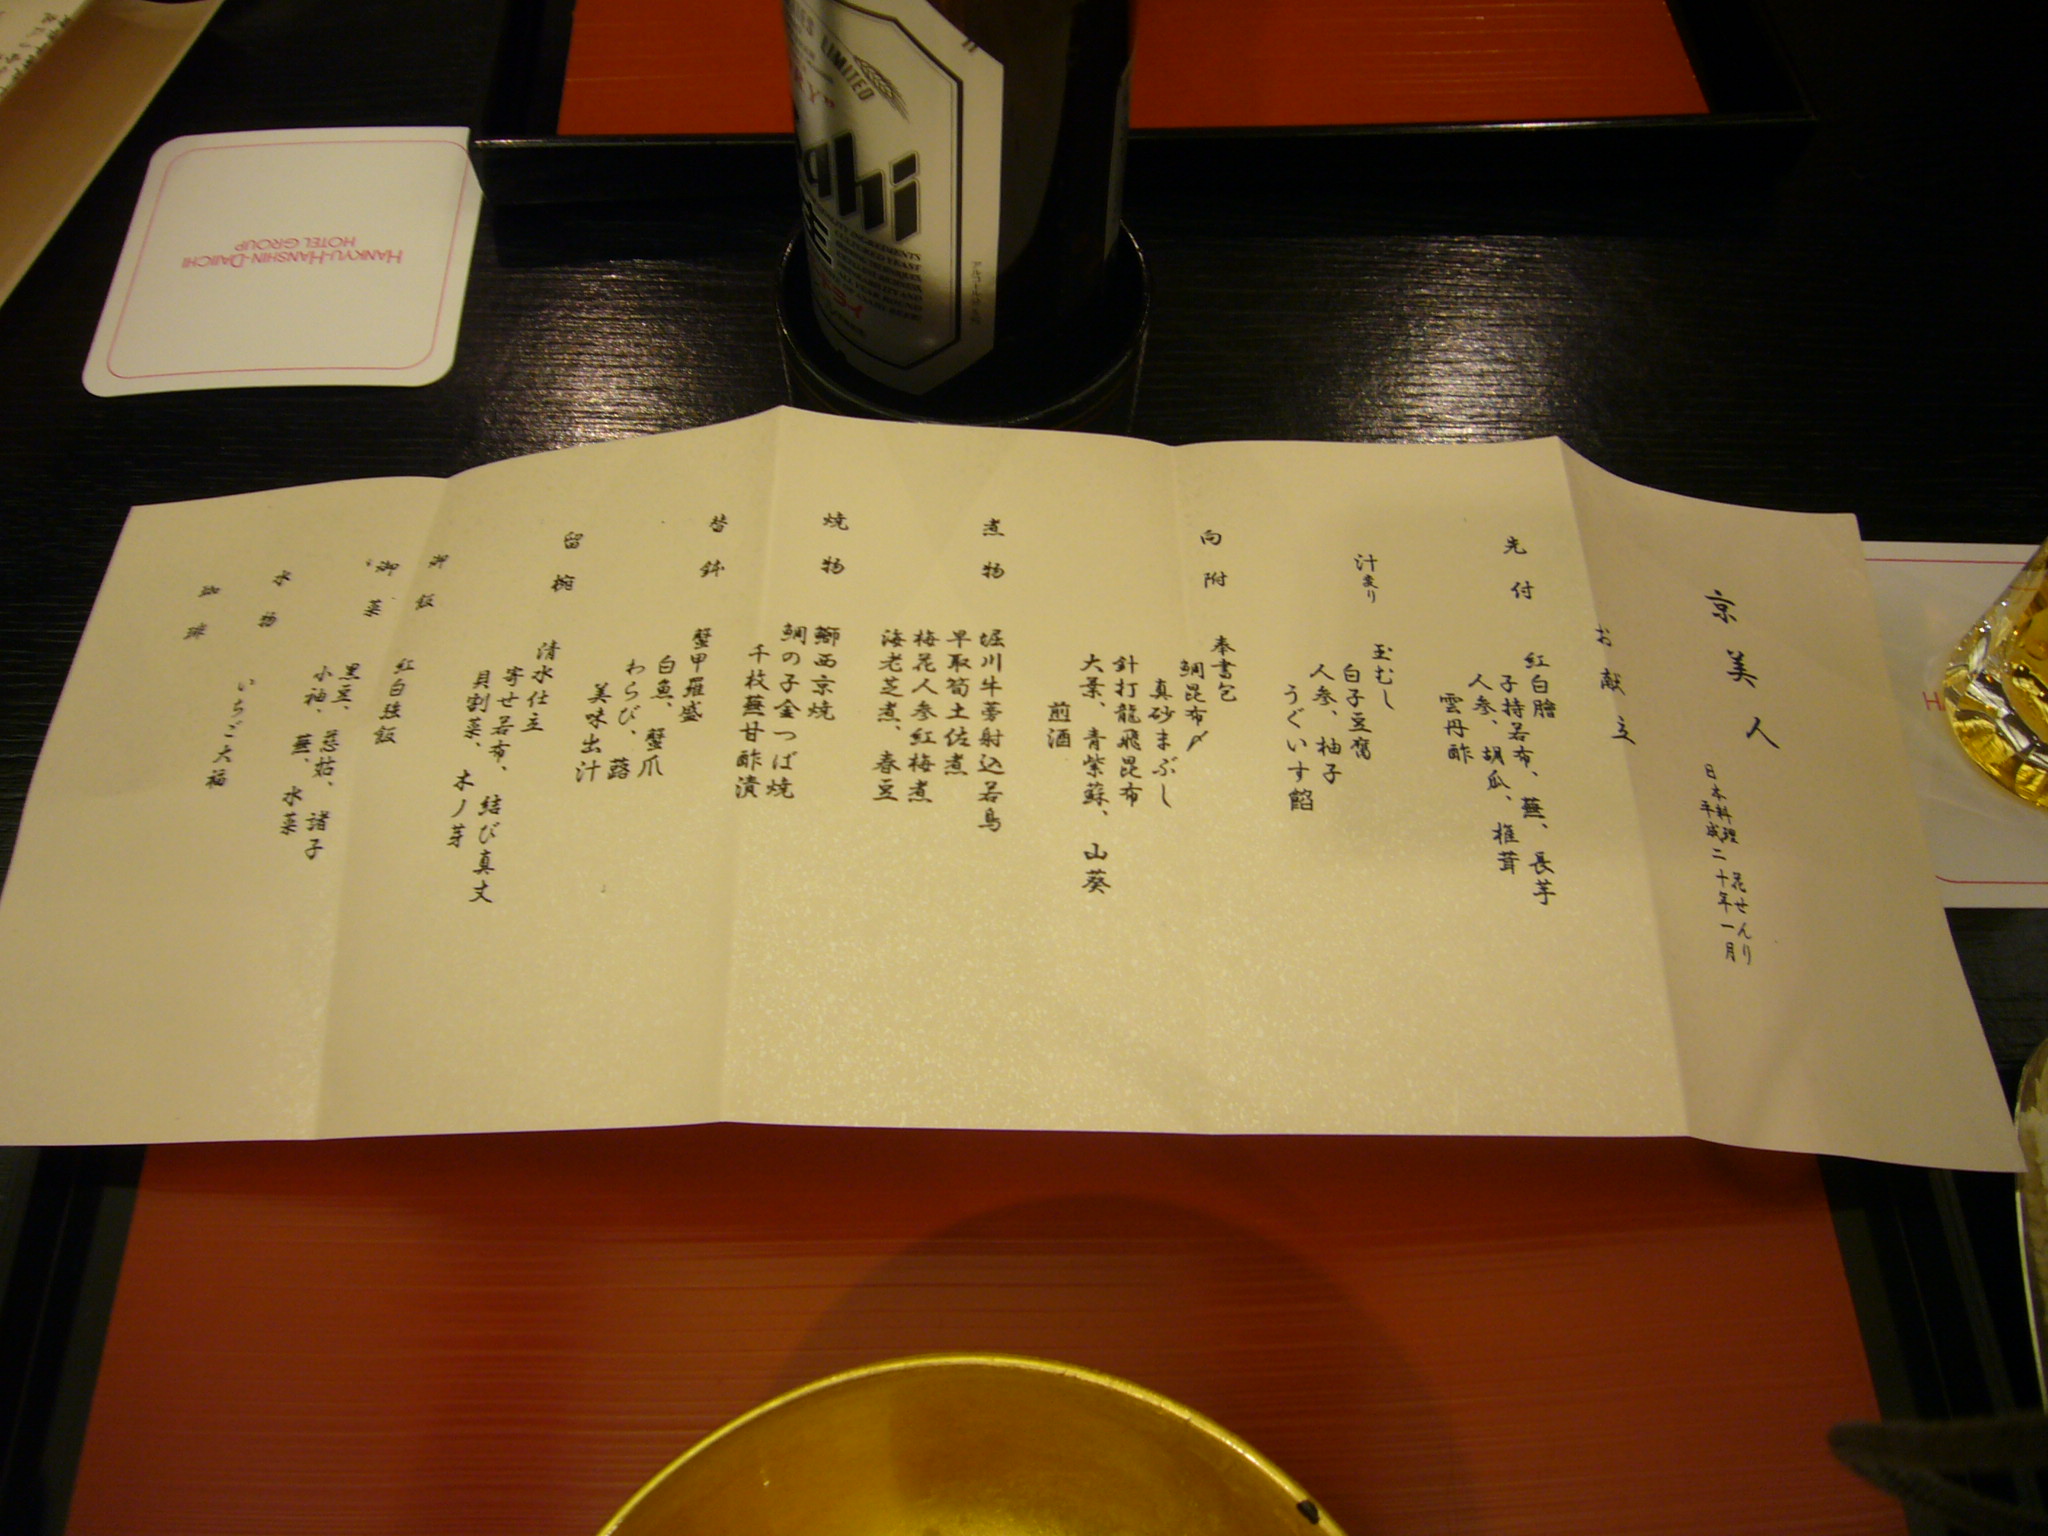 京美人
日本料理 花せんり
平成二十年一月
お献立
先付
紅白膾
子持若布、蕪、長芋
人参、胡瓜、椎茸
雲丹酢
汁まり
玉むし
白子豆腐
人参、柚子
うぐいす餡
向附
奉書包
鯛昆布〆
真砂まぶし
針打龍飛昆布
大葉、青紫蘇、山葵
煎酒
煮物
堀川牛蒡射込若鳥
早取筍土佐煮
梅花人参紅梅煮
海老芝煮、春豆
焼物
鰤西京焼
鯛の子金つば焼
千枚蕪甘酢漬
替鉢
蟹甲羅盛
白魚、蟹爪
わらび、蕗
美味出汁
留椀
清水仕立
寄せ若布、結び真丈
貝割菜、木ノ芽
御飯
紅白強飯
御菓
黒豆、慈姑、諸子
小袖、蕪、水菜
水物
いちご大福
珈琲
HANKYU-HANSHIN-DAIICHI
HOTEL GROUP
LIMITED
Asahi